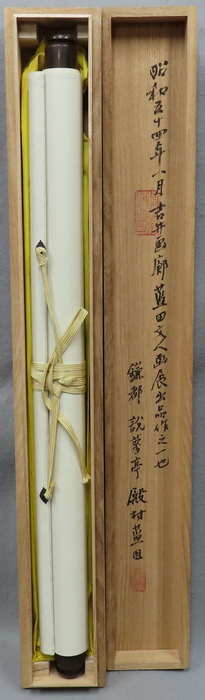 昭和五十四年八月吉井画廊藍田文人画展出品作之一也
鎌都 説夢亭 殿村藍田